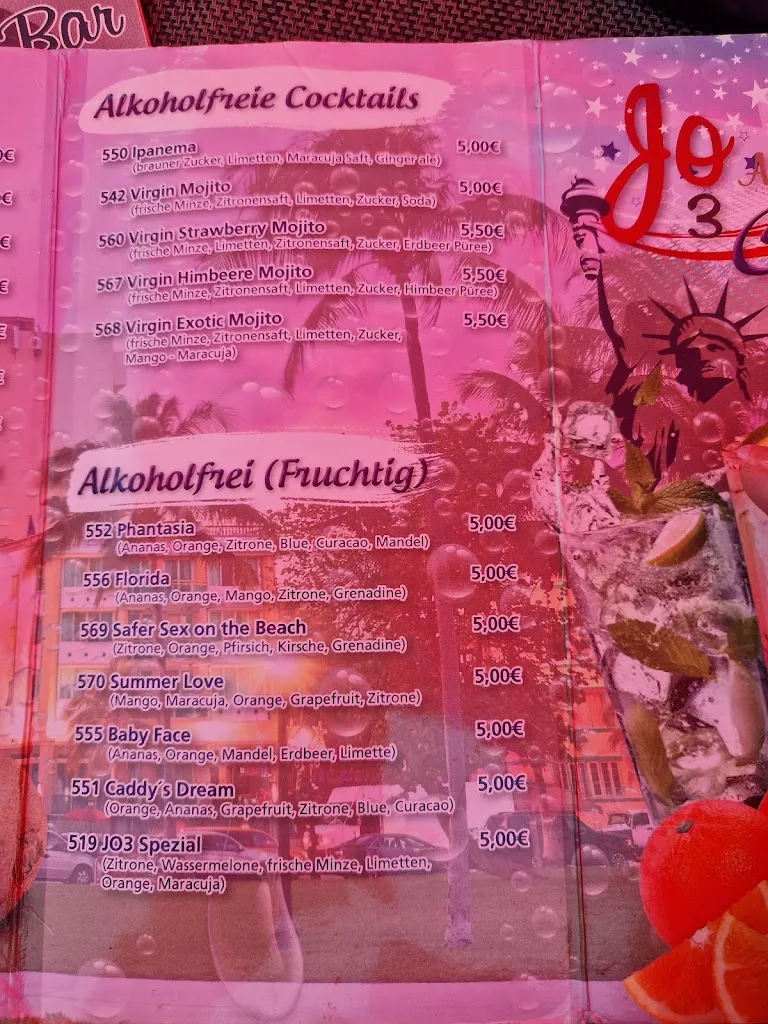 Bar
Alkoholfreie Cocktails
550 Ipanema 5,00€
(brauner Zucker, Limetten, Maracuja Saft, Ginger ale)
542 Virgin Mojito 5,00€
(frische Minze, Zitronensaft, Limetten, Zucker, Soda)
560 Virgin Strawberry Mojito 5,50€
(frische Minze, Limetten, Zitronensaft, Zucker, Erdbeer Püree)
567 Virgin Himbeere Mojito 5,50€
(frische Minze, Zitronensaft, Limetten, Zucker, Himbeer Püree)
568 Virgin Exotic Mojito 5,50€
(frische Minze, Zitronensaft, Limetten, Zucker,
Mango - Maracuja)
Alkoholfrei (Fruchtig)
552 Phantasia 5,00€
(Ananas, Orange, Zitrone, Blue, Curacao, Mandel)
556 Florida 5,00€
(Ananas, Orange, Mango, Zitrone, Grenadine)
569 Safer Sex on the Beach 5,00€
(Zitrone, Orange, Pfirsich, Kirsche, Grenadine)
570 Summer Love 5,00€
(Mango, Maracuja, Orange, Grapefruit, Zitrone)
555 Baby Face 5,00€
(Ananas, Orange, Mandel, Erdbeer, Limette)
551 Caddy´s Dream 5,00€
(Orange, Ananas, Grapefruit, Zitrone, Blue, Curacao)
519 JO3 Spezial 5,00€
(Zitrone, Wassermelone, frische Minze, Limetten,
Orange, Maracuja)
Jo
3